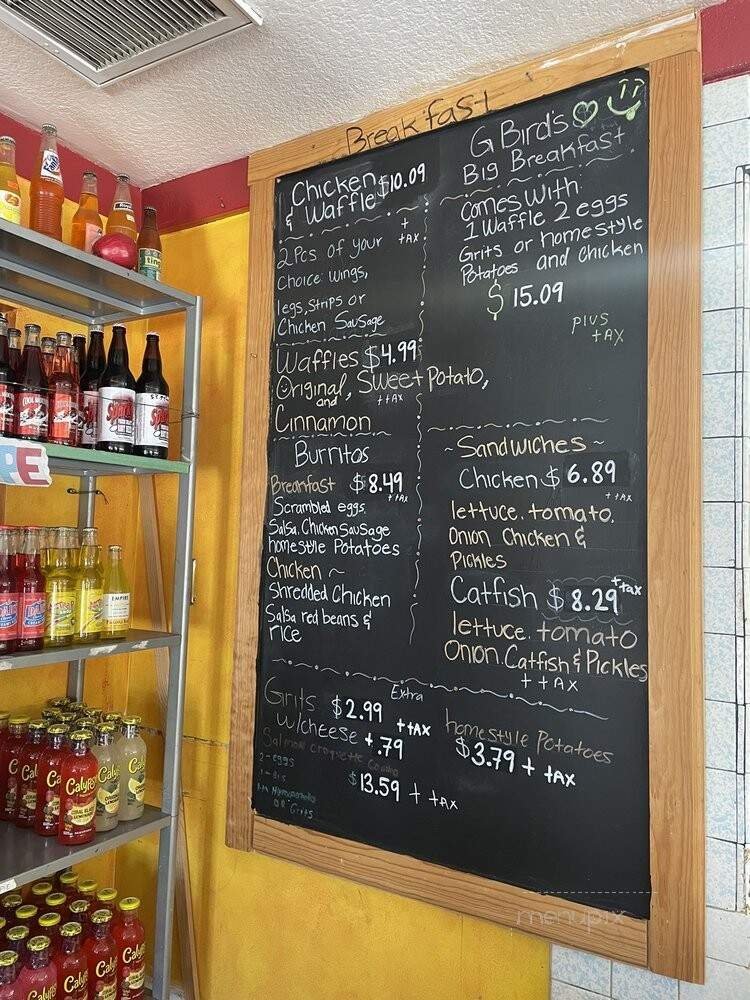 Breakfast
Chicken $10.09
& Waffle
+ +AX
2 Pcs of your
Choice wings,
legs, Strips or
Chicken Sausage
Waffles $4.99
Original, Sweet Potato,
and ++AX
Cinnamon
Burritos
Breakfast $8.49
++AX
Scrambled eggs
Salsa. Chicken Sausage
homestyle Potatoes
Chicken ~
Shredded Chicken
Salsa red beans &
rice
G Bird's
Big Breakfast
Comes with
1 Waffle 2 eggs
Grits or homestyle
Potatoes and Chicken
$15.09
plus
+AX
~ Sandwiches ~
Chicken $6.89
++AX
lettuce. tomato.
Onion Chicken &
Pickles
Catfish $8.29 ++ax
lettuce. tomato
Onion. Catfish & Pickles
++AX
Extra
Grits $2.99 ++AX
w/cheese +.79
homestyle Potatoes
$3.79 + +AX
Salmon croquette Combo
2-eggs
$13.59 + +AX
OR Grits
Calypso
Calypso
Calypso
Calypso
menupix